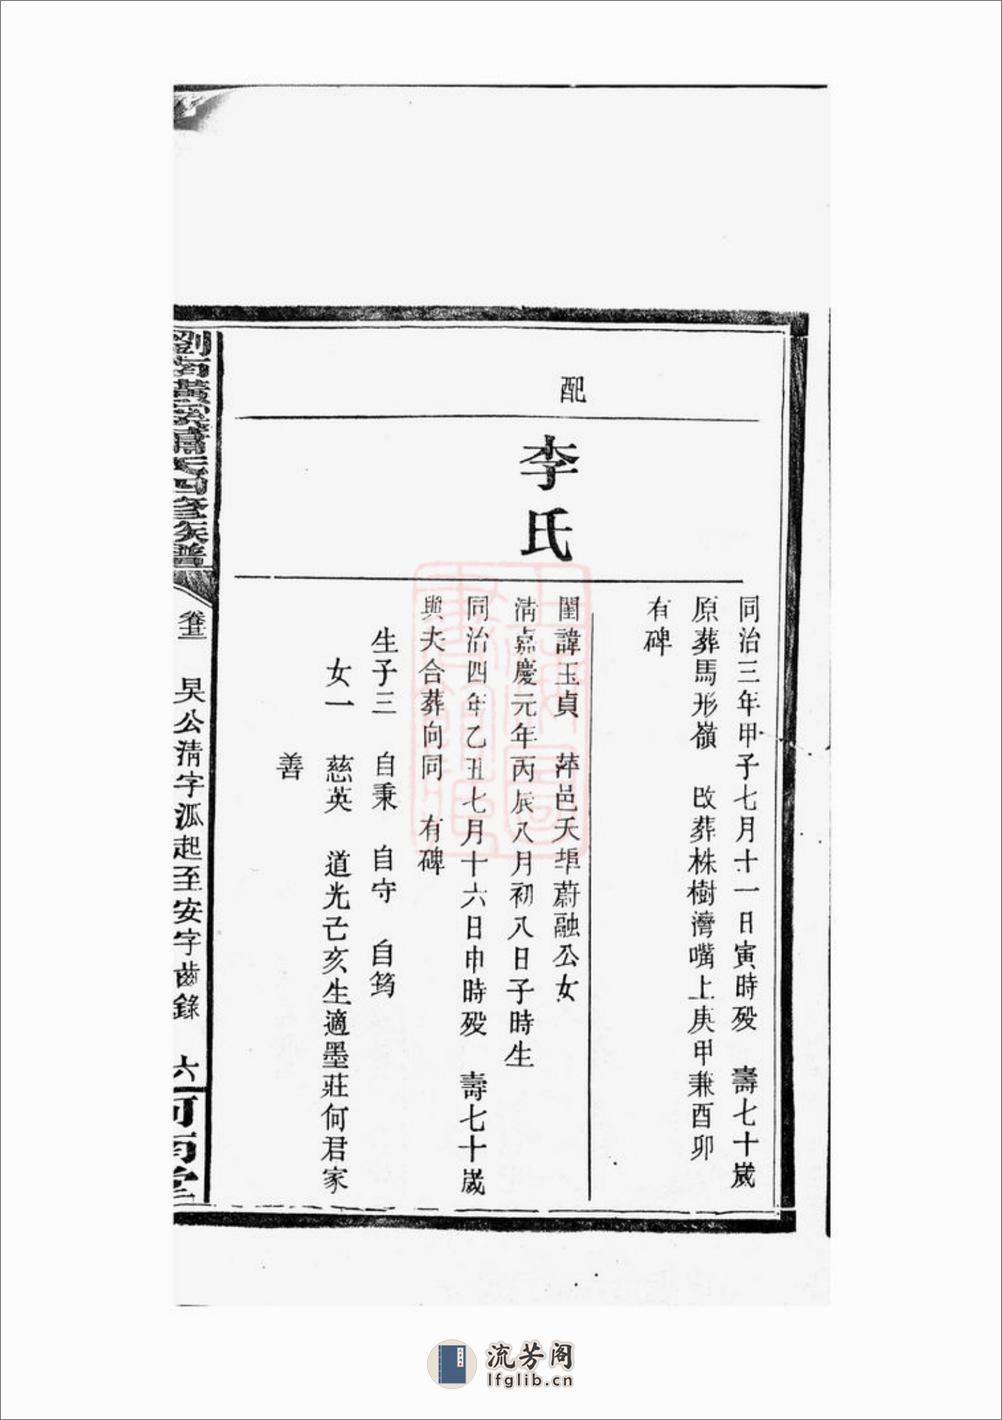 同治三年甲子七月十一日寅時殁　壽七十歲
原葬馬形嶺　改葬株樹灣嘴上庚甲兼酉卯
有碑
配
李氏
閨諱玉貞　萍邑天埠蔚融公女
清嘉慶元年丙辰八月初八日子時生
同治四年乙丑七月十六日申時殁　壽七十歲
與夫合葬向同　有碑
生子三　自秉　自守　自筠
女一　慈英　道光己亥生適墨莊何君家
善
卷三　昊公清字派起至安字齒錄　六
流芳阁
lfglib.cn